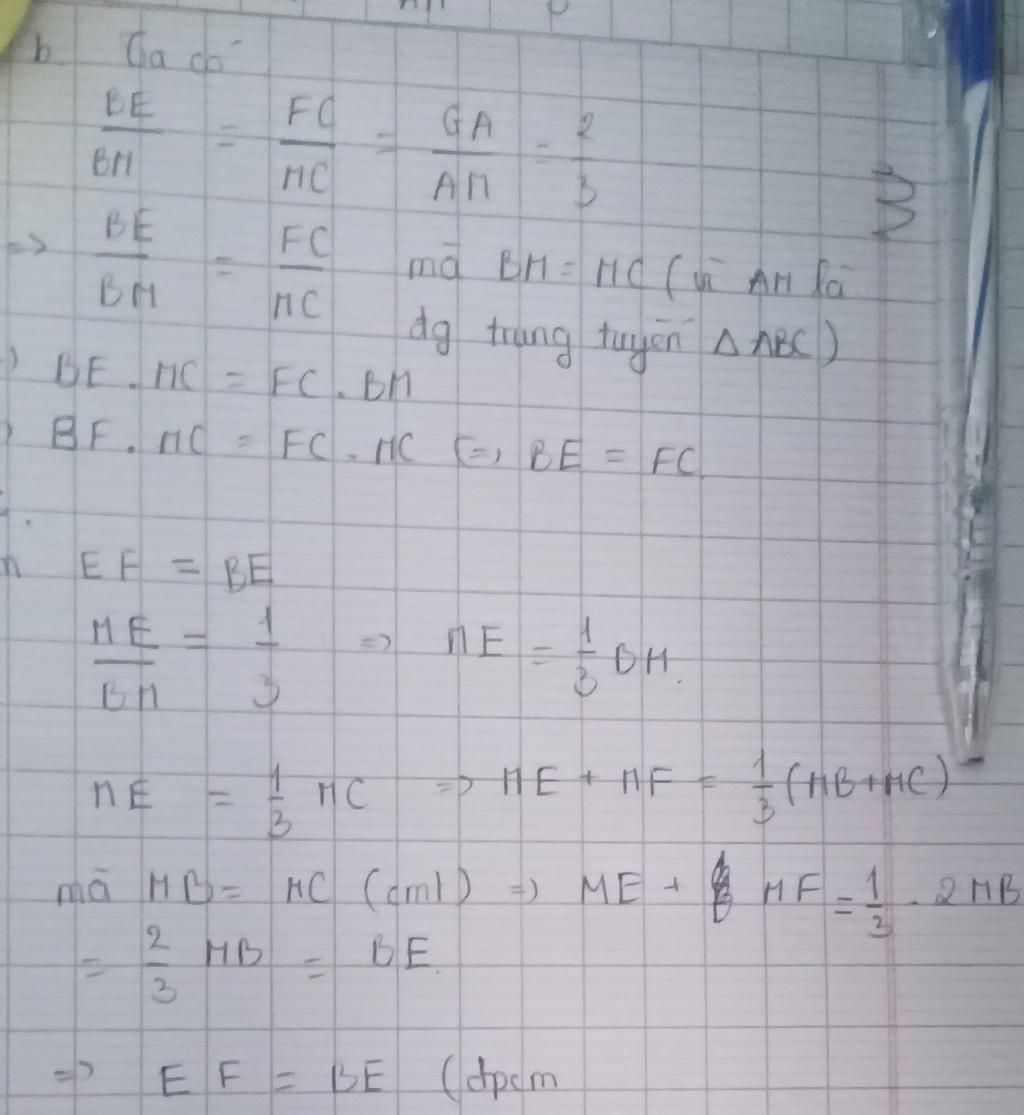 b. Ta có
BE/BM = FC/MC = GA/AM = 2/3
=> BE/BM = FC/MC mà BM = MC (vì AM là
đg trung tuyến Δ ABC)
BE . MC = FC . BM
BE . MC = FC . MC (=) BE = FC
EF = BE
ME/BM = 1/3 => ME = 1/3 BM.
ME = 1/3 MC => ME + MF = 1/3 (MB+MC)
mà MB = MC (cmt) => ME + MF = 1/3 . 2MB
= 2/3 MB = BE.
=> EF = BE (đpcm